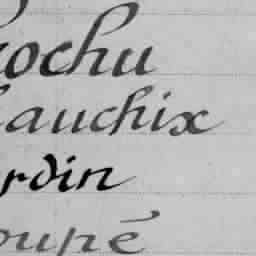 ochu
auchix
rdin
oupé